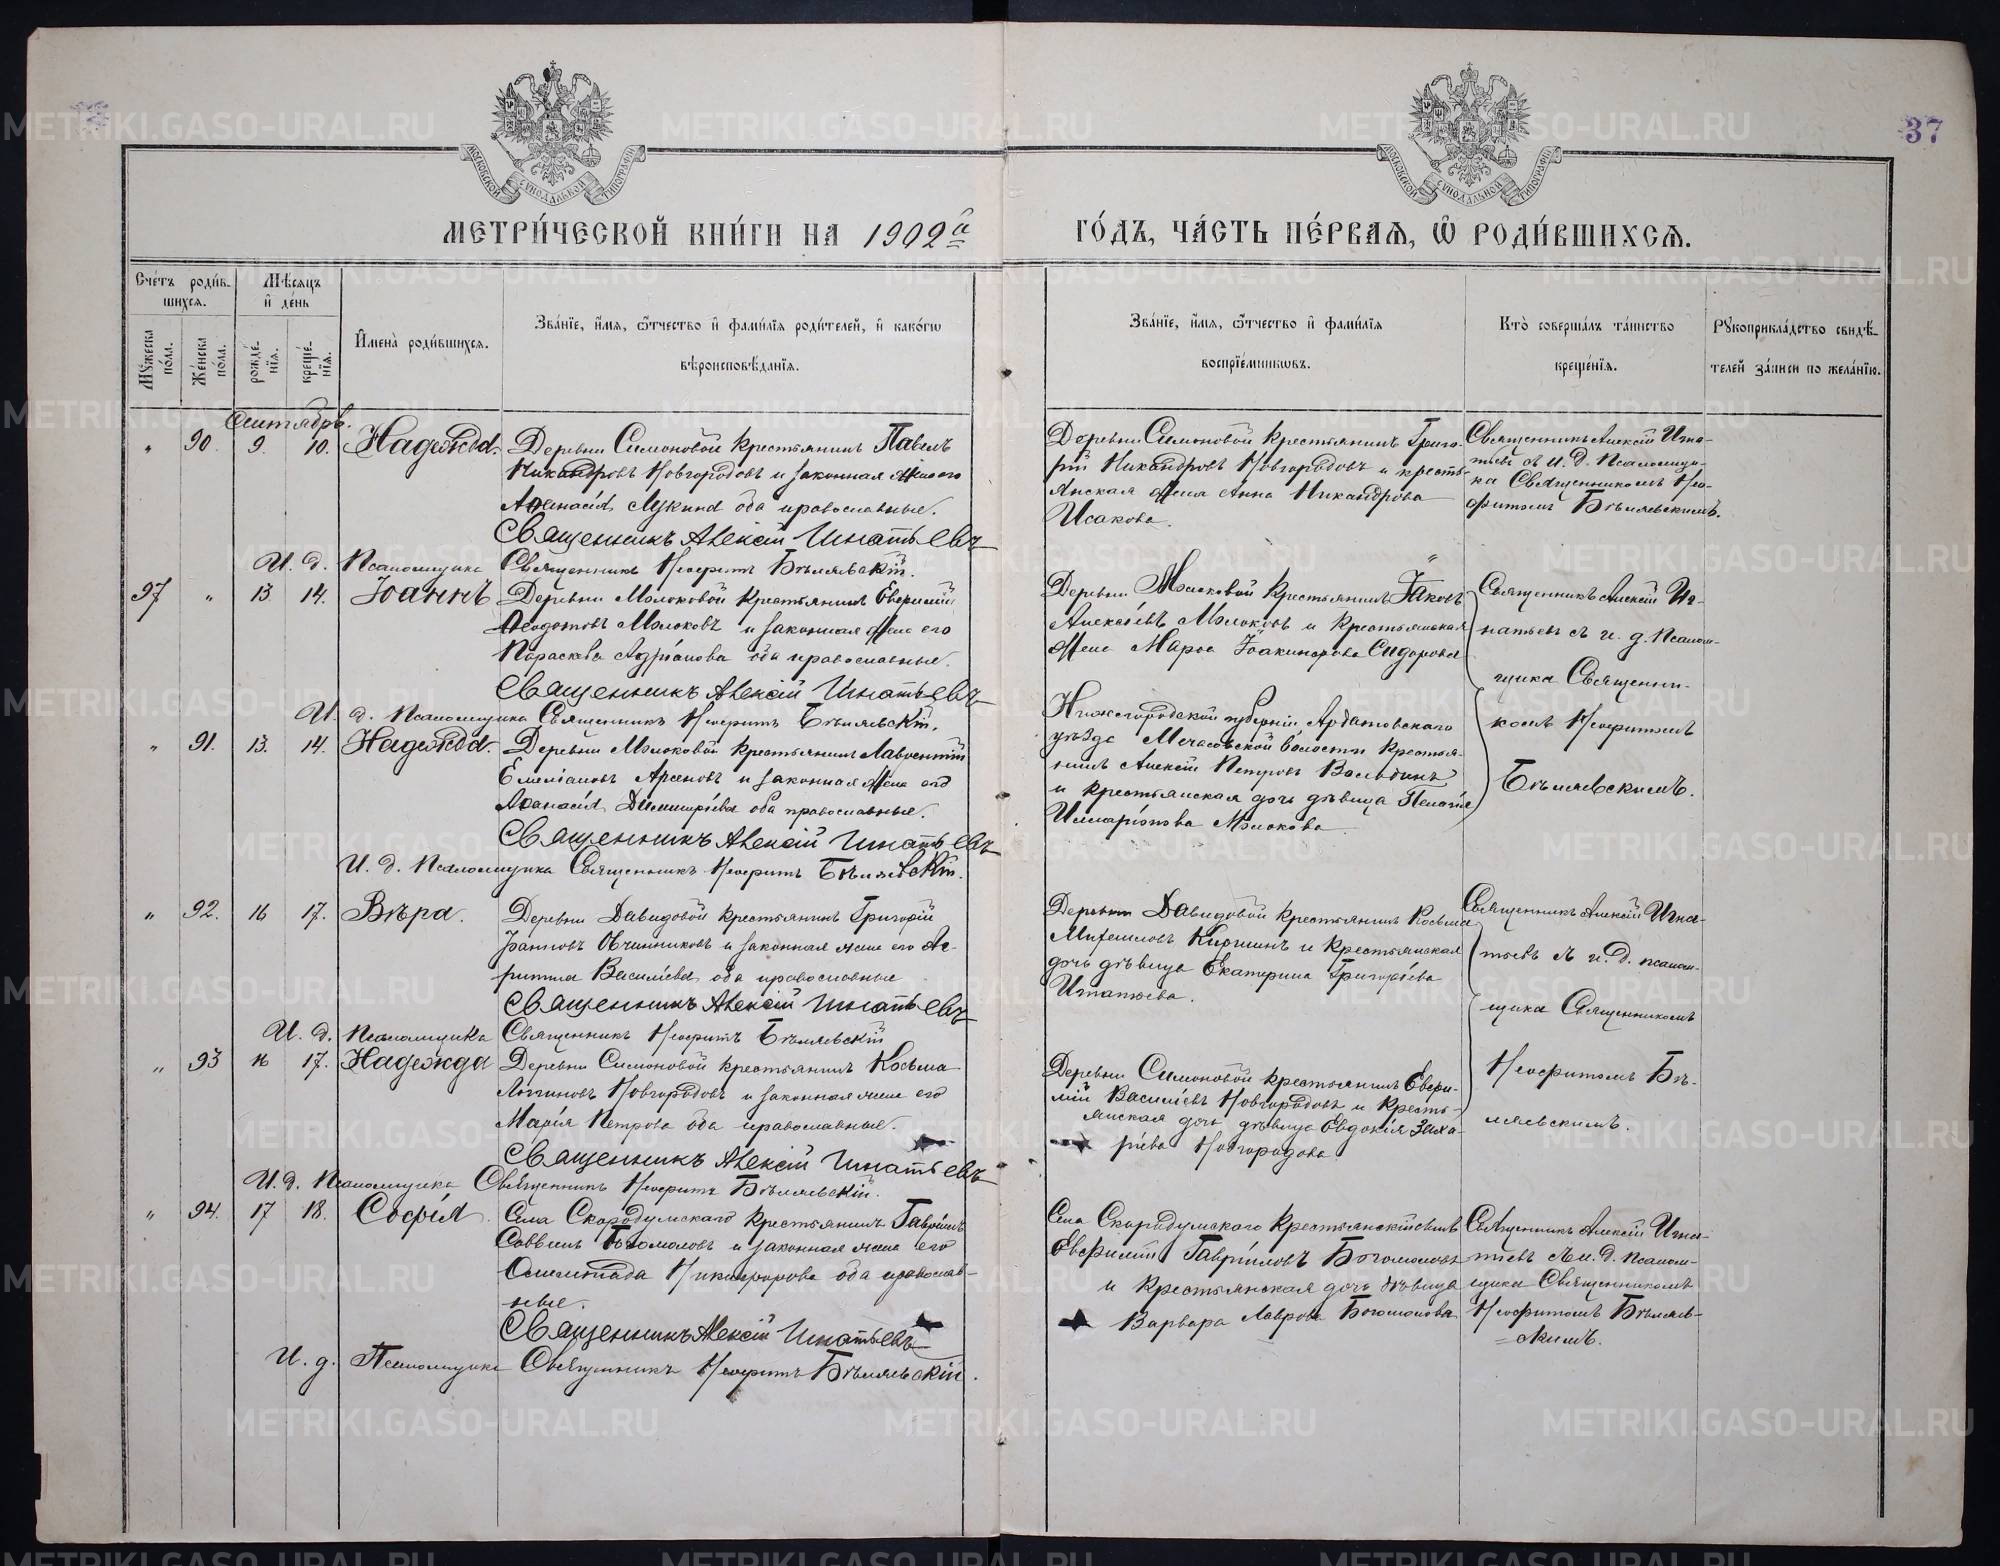 37
МОСКОВСКОЙ СѴНОДАЛЬНОЙ ТИПОГРАФІИ
МОСКОВСКОЙ СѴНОДАЛЬНОЙ ТИПОГРАФІИ
МЕТРИ́ЧЕСКОЙ КНИ́ГИ НА 1902й
ГО́ДЪ, ЧА́СТЬ ПЕ́РВАѦ, Ѽ РОДИ́ВШИХСѦ.
Сче́тъ роди́вшихсѧ.
Мѣ́сѧцъ и҆ де́нь
Мꙋ́жеска по́ла.
Же́нска по́ла.
рожде́нїѧ.
креще́нїѧ.
И҆мена̀ роди́вшихсѧ.
Зва́нїе, и҆́мѧ, ѻ҆́тчество и҆ фами́лїѧ роди́телей, и҆ како́гѡ
вѣроисповѣ́данїѧ.
Зва́нїе, и҆́мѧ, ѻ҆́тчество и҆ фами́лїѧ
воспрїе́мникѡвъ.
Кто̀ соверша́лъ та́инство
креще́нїѧ.
Рꙋкоприкла́дство свидѣ́-
телей за́писи по жела́нїю.
Сентябрь.
" 90. 9. 10. Надежда.
Деревни Симоновой крестьянинъ Павелъ
Никандровъ Новгородовъ и законная жена его
Аѳанасія Лукина оба православные.
Священникъ Алексій Игнатьевъ
И. д. Псаломщика Священникъ Неофитъ Бѣлявскій.
Деревни Симоновой крестьянинъ Григо-
рій Никандровъ Новгородовъ и кресть-
янская жена Анна Никандрова
Исакова.
Священникъ Алексій Игна-
тьевъ съ и. д. Псаломщи-
ка Священникомъ Нео-
фитомъ Бѣлявскимъ.
97 " 13 14. Іоаннъ
Деревни Молоковой крестьянинъ Евфимій
Ѳеодотовъ Молоковъ и законная жена его
Параскева Адріанова оба православные.
Священникъ Алексій Игнатьевъ
И. д. Псаломщика Священникъ Неофитъ Бѣлявскій.
Деревни Молоковой крестьянинъ Іаковъ
Алексѣевъ Молоковъ и крестьянская
жена Марѳа Іоакинфова Сидорова
Священникъ Алексій Иг-
натьевъ съ и. д. Псалом-
щика Священни-
комъ Неофитомъ
Бѣлявскимъ.
" 91. 13. 14. Надежда.
Деревни Молоковой крестьянинъ Лаврентій
Емеліановъ Арсеновъ и законная жена его
Аѳанасія Димитріева оба православные.
Священникъ Алексій Игнатьевъ
И. д. Псаломщика Священникъ Неофитъ Бѣлявскій.
Нижегородской губерніи Ардатовскаго
уѣзда волости крестья-
нинъ Алексій Петровъ
и крестьянская дочь дѣвица Пелагія
Илларіонова Молокова.
" 92. 16 17. Вѣра.
Деревни Давидовой крестьянинъ Григорій
Овчинниковъ и законная жена его Аг-
рипина Васильева оба православные
Священникъ Алексій Игнатьевъ
И. д. Псаломщика Священникъ Неофитъ Бѣлявскій
Деревни Давидовой крестьянинъ Косьма
и крестьянская
дочь дѣвица Екатерина Григорьева
Игнатьева.
Священникъ Алексій Игна-
тьевъ съ и. д. псалом-
щика Священникомъ
Неофитомъ Бѣ-
лявскимъ.
" 93 16 17. Надежда
Деревни Симоновой крестьянинъ Косьма
Логиновъ Новгородовъ и законная жена его
Марія Петрова оба православные.
Священникъ Алексій Игнатьевъ
И. д. Псаломщика Священникъ Неофитъ Бѣлявскій.
Деревни Симоновой крестьянинъ Евфи-
мій Васильевъ Новгородовъ и кресть-
янская дочь дѣвица Евдокія Заха-
рьева Новгородова.
" 94. 17 18. Софія.
Села Скородумскаго крестьянинъ Гавріилъ
Саввинъ Богомоловъ и законная жена его
Олимпіада Никифорова оба православ-
ные.
Священникъ Алексій Игнатьевъ
И. д. Псаломщика Священникъ Неофитъ Бѣлявскій.
Села Скородумскаго крестьянскій сынъ
Евфимій Гавріиловъ Богомоловъ
и крестьянская дочь дѣвица
Варвара Лаврова Богомолова
Священникъ Алексій Игна-
тьевъ съ и. д. псалом-
щика Священникомъ
Неофитомъ Бѣляв-
скимъ.
METRIKI.GASO-URAL.RU